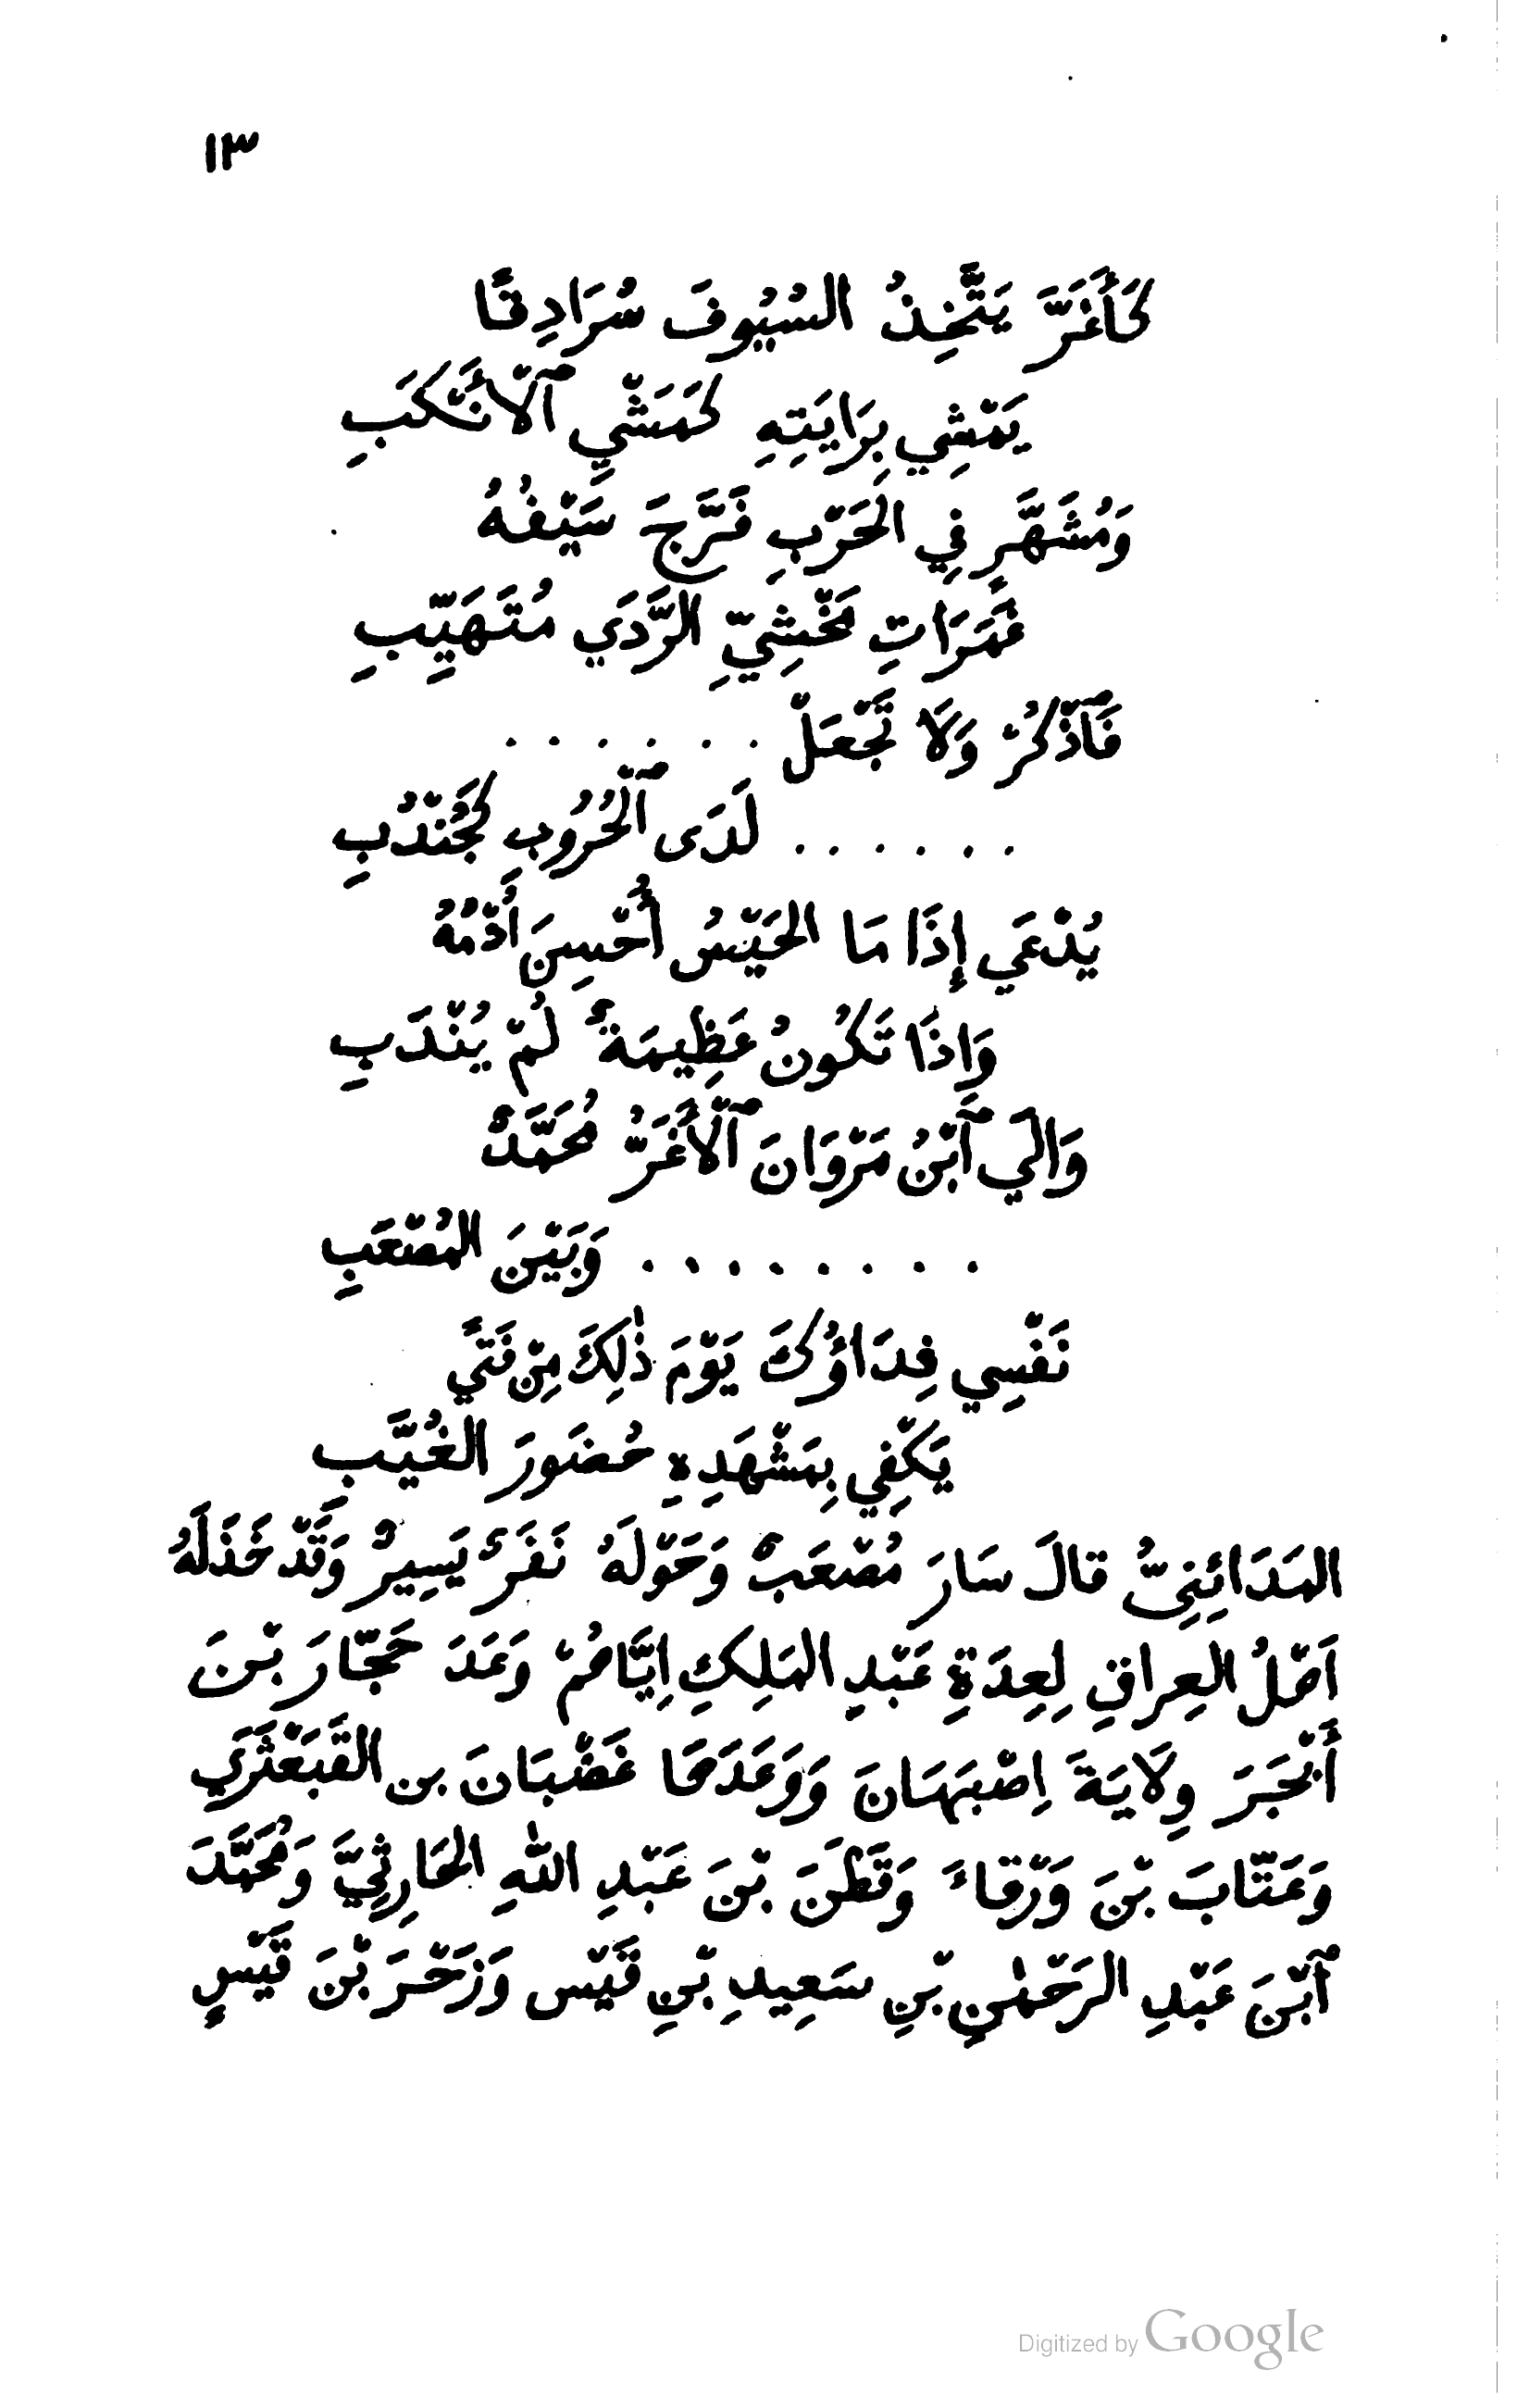 ١٣
كَأَغَرَّ يَتَّخِذُ السُيُوفَ سُرَادِقًا
يَمْشِي بِرَايَتِهِ كَمَشْيِ ٱلْأَنْكَبِ
وَمُشَهَّرٍ فِي الْحَرْبِ فَرَّجَ سَيْفُهُ
غَمَرَاتِ مَخْشِيِّ الرَّدَي مُتَهَيَّبِ
فَٱذْكُرْ وَلَا تَجْعَلْ . . . . . .
. . . . . . لَدَى ٱلْحُرُوبِ كَجُنْدُبِ
يُدْعَي إِذَا مَا الحَيْسُ أُحْسِنَ أُدْمُهُ
وَإِذَا تَكُونُ عَظِيمَةٌ لَمْ يُنْدَبِ
وَالَيَ ٱبْنُ مَرْوَانَ ٱلْأَغَرُّ مُحَمَّدٌ
. . . . . . . . وَبَيْنَ المُصْعَبِ
نَفْسِي فِدَاؤُكَ يَوْمَ ذٰلِكَ مِنْ فَتًي
يَكْفِي بِمَشْهَدِهِ حُضَورَ الغُيَّبِ
المَدَائِنِيُّ قالَ سَارَ مُصْعَبٌ وَحَوْلَهُ نَفَرٌ يَسِيرٌ وَقَدْ خَذَلَهُ
اَهْلُ العِراقِ لِعِدَةِ عَبْدِ المَلِكِ اِيَّاهُمْ وَعَدَ حَجَّارَ بْنَ
أَبْجَرَ وِلَايَةَ اِصْبَهَانَ وَوَعَدَهَا غَضْبَانَ بن القَبَعْثَرَي
وَعَتَّابَ بْنَ وَرْقاءَ وَقَطَنَ بْنَ عَبْدِ اللهِ الحَارِثِيَّ وَمُحَمَّدَ
ٱبْنَ عَبْدِ الرَحْمٰنِ بْنِ سَعِيدِ بْنِ قَيْس وَزَحْرَ بْنَ قَيْسٍ
Digitized by Google